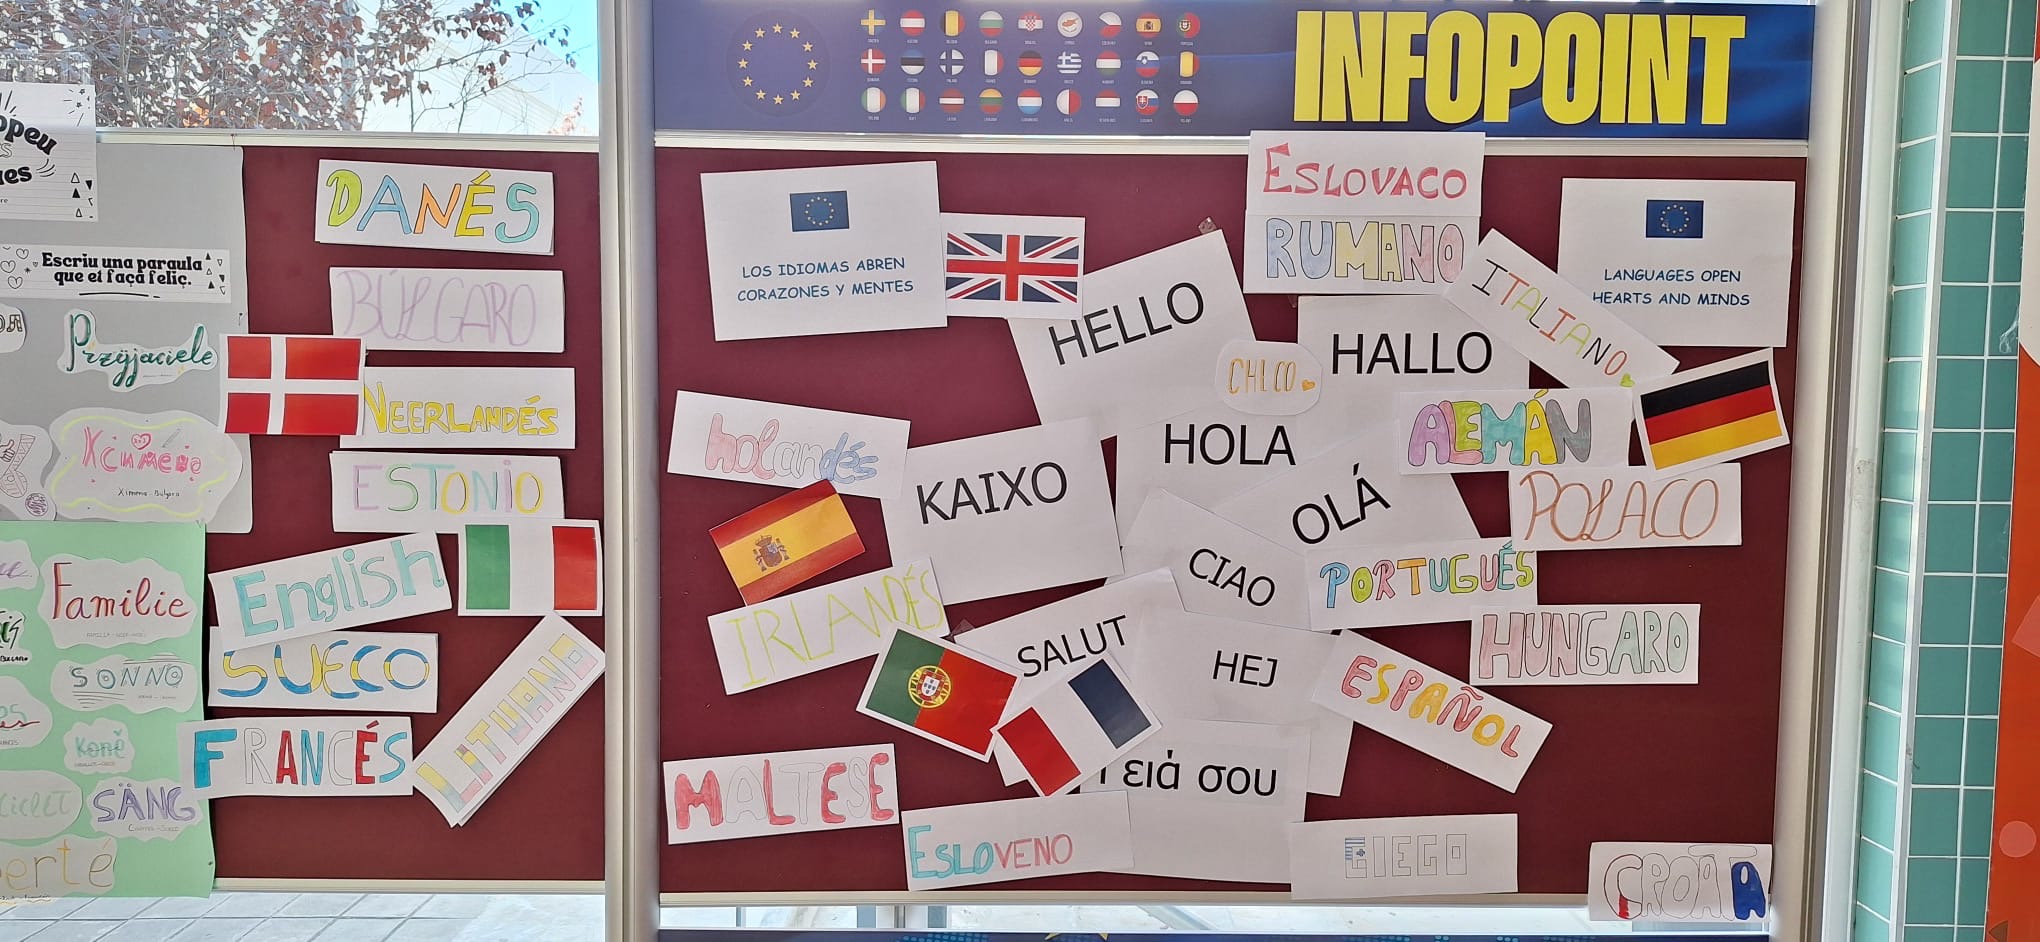 INFOPOINT
Escriu una paraula
que et faça feliç.
Przyjaciele
Ximena - Búlgaro
Familie
SONNO
SÄNG
DANÉS
BÚLGARO
NEERLANDÉS
ESTONIO
English
SUECO
FRANCÉS
LITUANO
LOS IDIOMAS ABREN
CORAZONES Y MENTES
ESLOVACO
RUMANO
ITALIANO
LANGUAGES OPEN
HEARTS AND MINDS
HELLO
HALLO
holandés
KAIXO
HOLA
ALEMÁN
OLÁ
POLACO
IRLANDÉS
CIAO
PORTUGUÉS
SALUT
HEJ
HUNGARO
ESPAÑOL
MALTESE
Γειά σου
ESLOVENO
GIEGO
CROATA